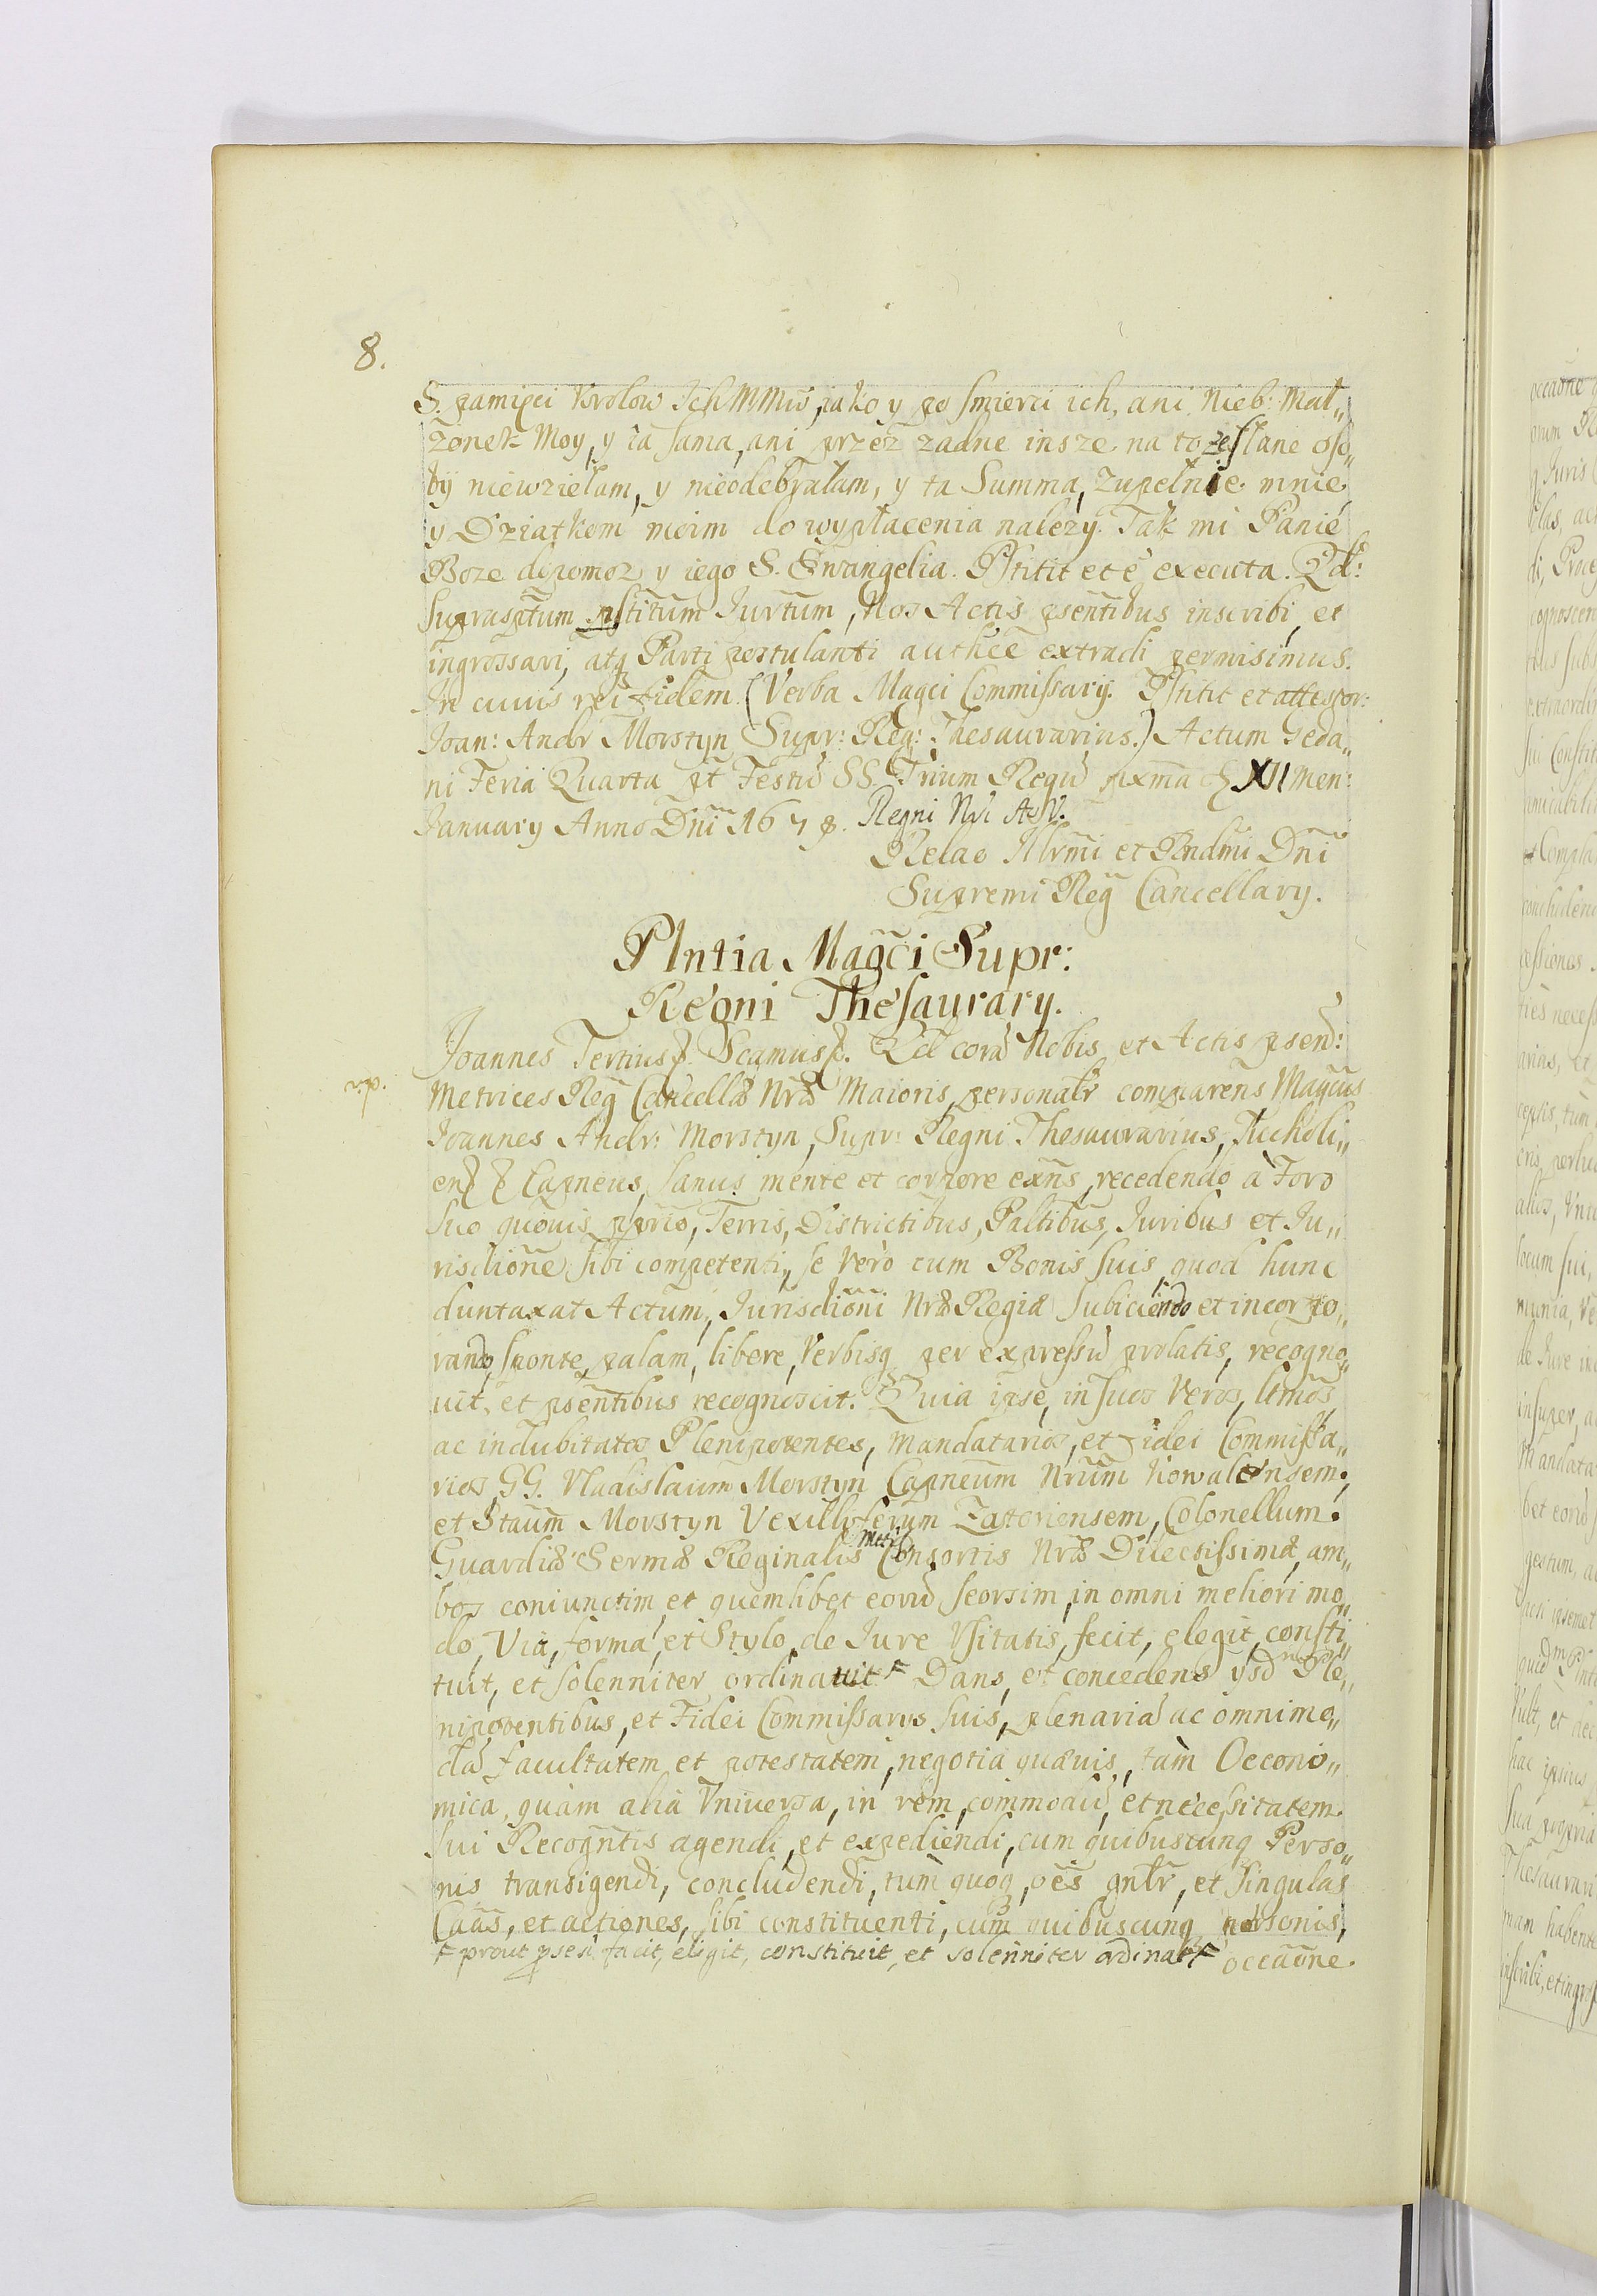 8.
S. pamięci Krolow Ich MMciow, iako y po smierci ich, ani Nieb: Mał„
żonek Moy, y ia sama, ani przez żadne insze na to zesłane oso„
by niewziełam, y nieodebrałam, y ta Summa, zupełnie mnie
y Dziatkom moim do wypłacenia należy. Tak mi Panie
Boze dopomoz y iego S. Ewangelia. Pstitit et ē executa. Qd:
supraspt̄um pstitum Jurtum, Nos Actis pse͂ntibus inscribi, et
ingrossari, atq Parti postulanti authcē extradi permisimus.
In cuius rei fidem. (Verba Magci Commissarij. Pstitit et attestor:
Joan: Andr Morstyn Supr: Reg: Thesaurarius.) Actum Geda„
ni Feria Quarta pt Festū SS. Trium Regū pxma XII Men:
January Anno Dni 1678. Regni Nri Ao V.
Relao Illrmi et Rndmi Dni
Supremi Regⁱ Cancellary.
Plntia Magci Supr:
Regni Thesaurary.
Joannes Tertius Scamus. Qd corā Nobis et Actis psen:
r.p.
Metrices Reg Cancellæ Nræ Maioris, personalr comparens Magcus
Joannes Andr: Morstyn, Supr: Regni Thesaurarius, Tucholi„
en Capneus, sanus mente et corpore exns, recedendo à Foro
suo quovis pprio, Terris, Districtibus, Paltibus, Juribus et Ju„
risdione sibi competenti, se vero cum Bonis suis, quod hunc
duntaxat Actum, Jurisdioni Nræ Regiæ subiciendo et incorpo„
rando, sponte, palam, libere, Verbisq per expressū prolatis, recogno„
uit, et psentibus recognoscit. Quia ipse, in suos Veros, ltmos,
ac indubitatos Plenipotentes, Mandatarios, et Fidei Commissa„
rios, GG. Vladislaum Morstyn Capneum Nrum Kowalensem,
et Staum Morstyn Vexilliferum Zatoriensem, Colonellum
Guardiæ Sermæ Reginalis Mtis Consortis Nræ Dilectissimæ, am„
bos coniunctim, et quemlibet eorū seorsim, in omni meliori mo„
do, Via, forma, et Stylo, de Jure Vsitatis, fecit, elegit, consti„
tuit, et solenniter ordinauit ⌿ Dans, et concedens ijsd Ple„
nipotentibus, et Fidei Commissarys suis, plenariā ac omnimo„
dā facultatem et potestatem, negotia quævis, tam Oecono„
mica, quam alia Vniversa, in rem, commodū, et necessitatem
sui Recogntis agendi, et expediendi, cum quibuscunq Perso„
nis transigendi, concludendi, tum quoq, oēs gnlr, et singulas
Caas, et actiones, sibi constituenti, cum quibuscunq personis,
⌿ prout psesi facit, eligit, constituit, et solenniter ordinat ⌿ occaone